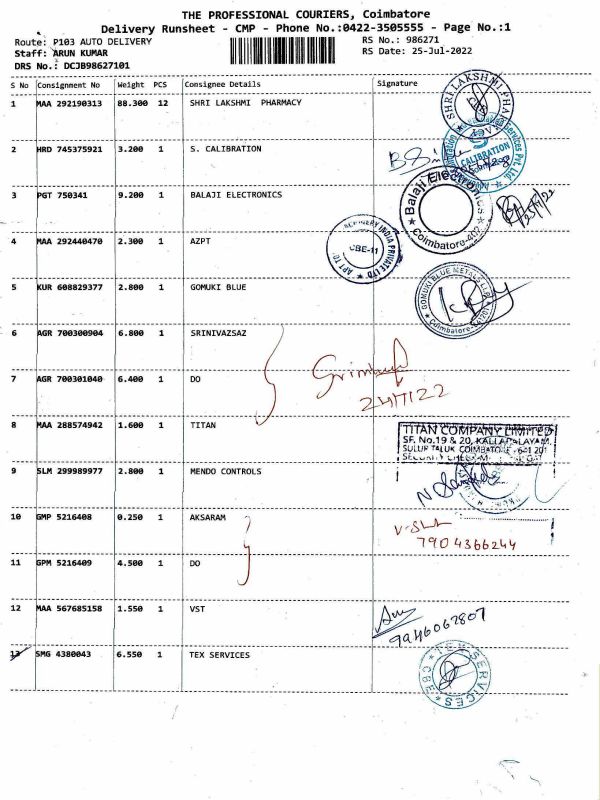 THE PROFESSIONAL COURIERS, Coimbatore
Delivery Runsheet - CMP - Phone No.:0422-3505555 - Page No.:1
Route: P103 AUTO DELIVERY
RS No.: 986271
Staff: ARUN KUMAR
RS Date: 25-Jul-2022
DRS No.: DCJB98627101
S No Consignment No Weight PCS Consignee Details Signature
1 MAA 292190313 88.300 12 SHRI LAKSHMI PHARMACY
2 HRD 745375921 3.200 1 S. CALIBRATION
CALIBRATION
3 PGT 750341 9.200 1 BALAJI ELECTRONICS
Balaji Electronics
Coimbatore-402
25/7/22
4 MAA 292440470 2.300 1 AZPT
CBE-11
5 KUR 608829377 2.800 1 GOMUKI BLUE
GOMUKI BLUE METALS LLP
6 AGR 700300904 6.800 1 SRINIVAZSAZ
7 AGR 700301040 6.400 1 DO
8 MAA 288574942 1.600 1 TITAN
TITAN COMPANY LIMITED
SF. No.19 & 20, KALLAPALAYAM,
SULUR TALUK COIMBATORE - 641 201
9 SLM 299989977 2.800 1 MENDO CONTROLS
10 GMP 5216408 0.250 1 AKSARAM
7904366244
11 GPM 5216409 4.500 1 DO
12 MAA 567685158 1.550 1 VST
9946062807
13 SMG 4380043 6.550 1 TEX SERVICES
TEX SERVICES
CBE